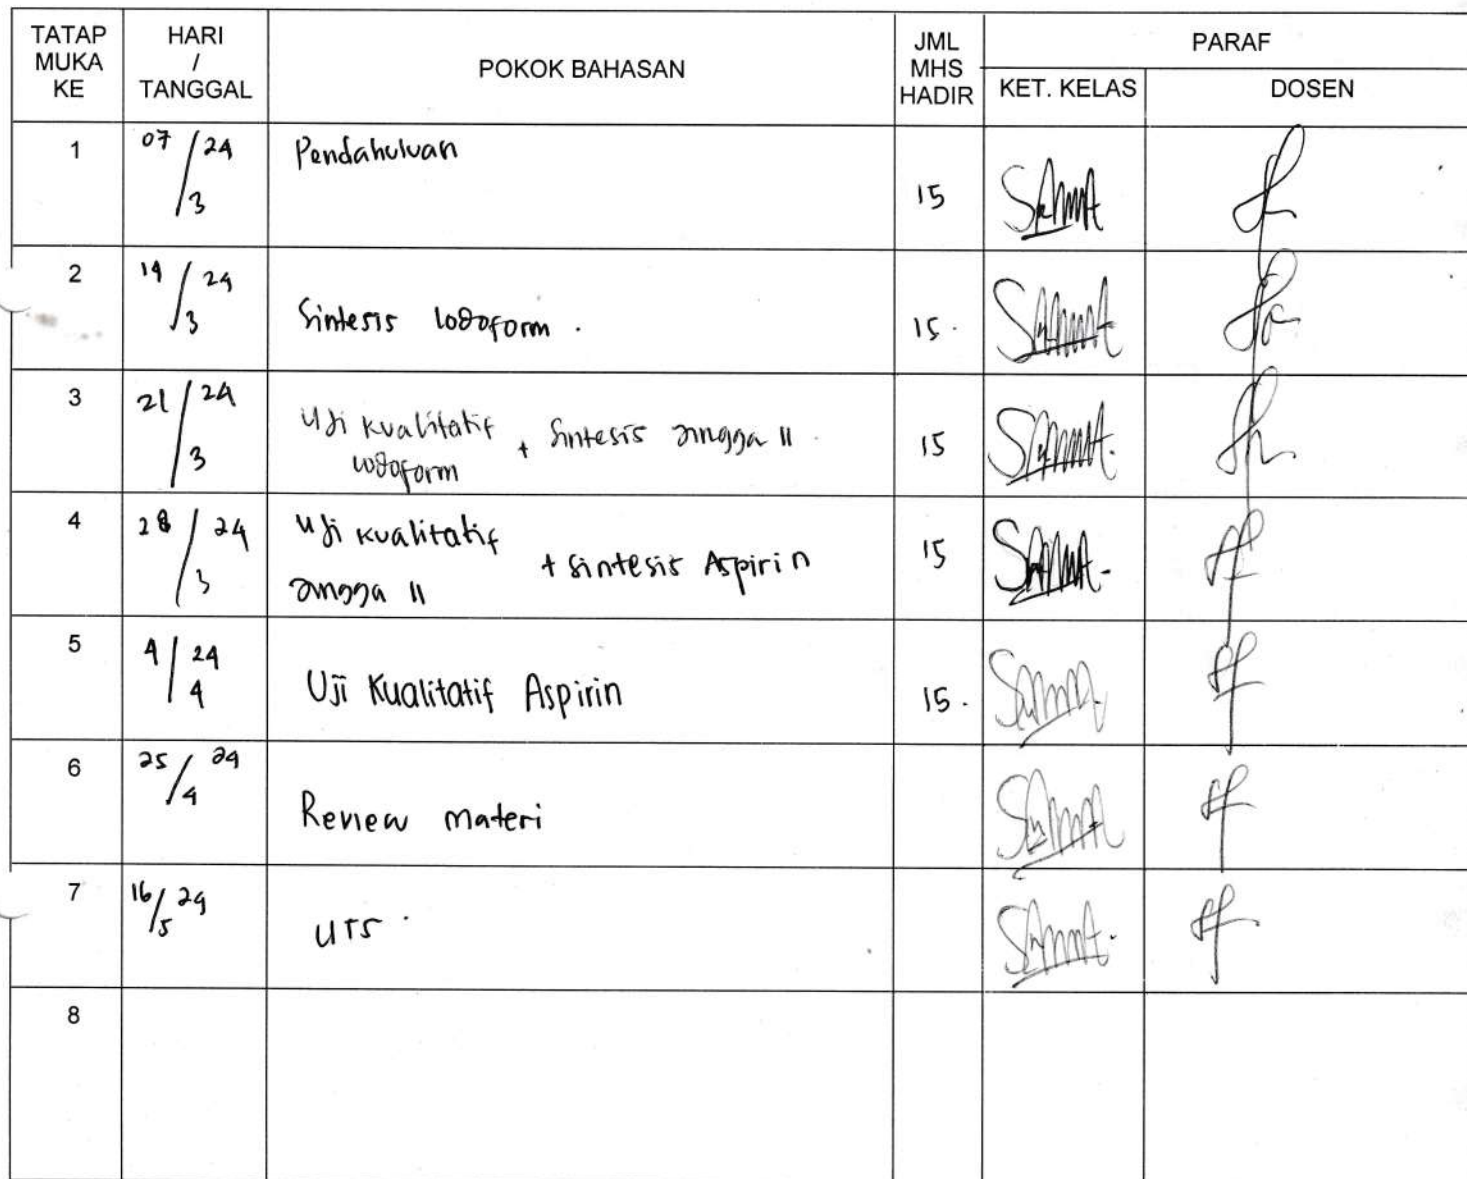 TATAP MUKA KE
HARI / TANGGAL
POKOK BAHASAN
JML MHS HADIR
PARAF
KET. KELAS
DOSEN
1 07/3 24 Pendahuluan 15
2 14/3 24 Sintesis Iodoform. 15.
3 21/3 24 Uji kualitatif Iodoform + Sintesis Jingga II. 15
4 28/3 24 Uji kualitatif Jingga II + Sintesis Aspirin 15
5 4/4 24 Uji Kualitatif Aspirin 15.
6 25/4 24 Review materi
7 16/5 24 UTS.
8